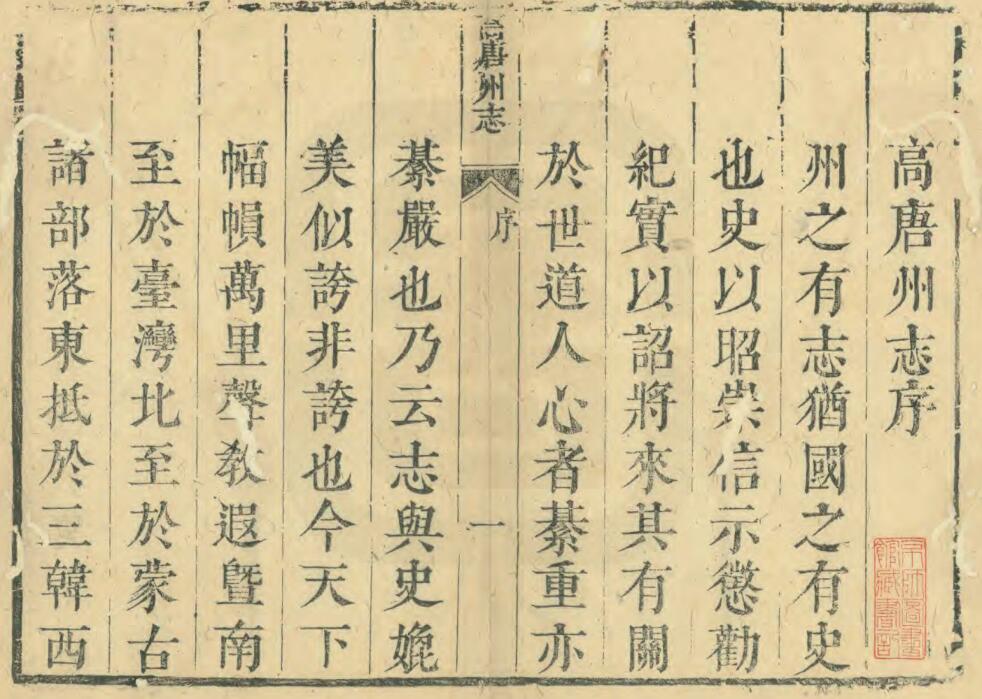 高唐州志序
州之有志猶國之有史
也史以昭崇信示懲勸
紀實以詔將來其有關
於世道人心者綦重亦
唐州志
序
一
綦嚴也乃云志與史媲
美似誇非誇也今天下
幅幀萬里聲敎遐曁南
至於臺灣北至於蒙古
諸部落東抵於三韓西